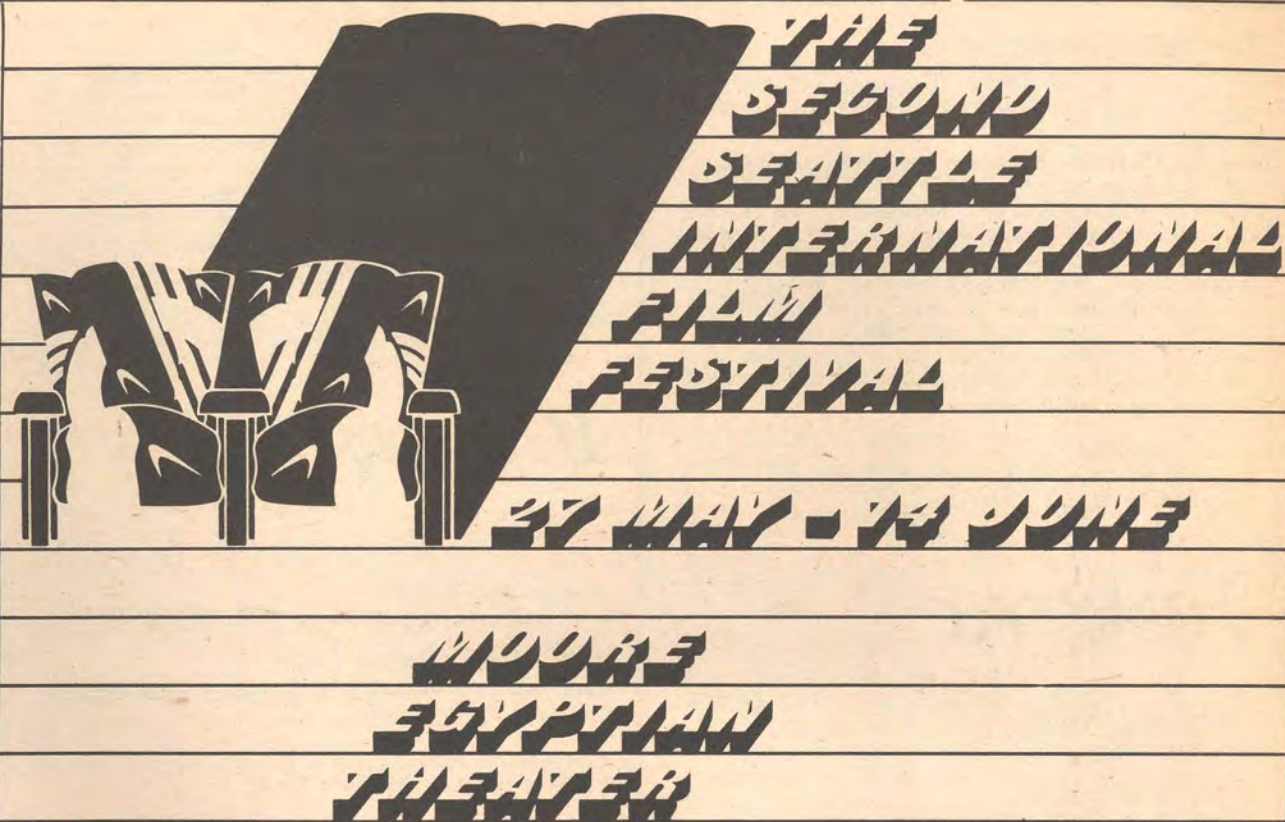 THE
SECOND
SEATTLE
INTERNATIONAL
FILM
FESTIVAL
27 MAY - 14 JUNE
MOORE
EGYPTIAN
THEATER